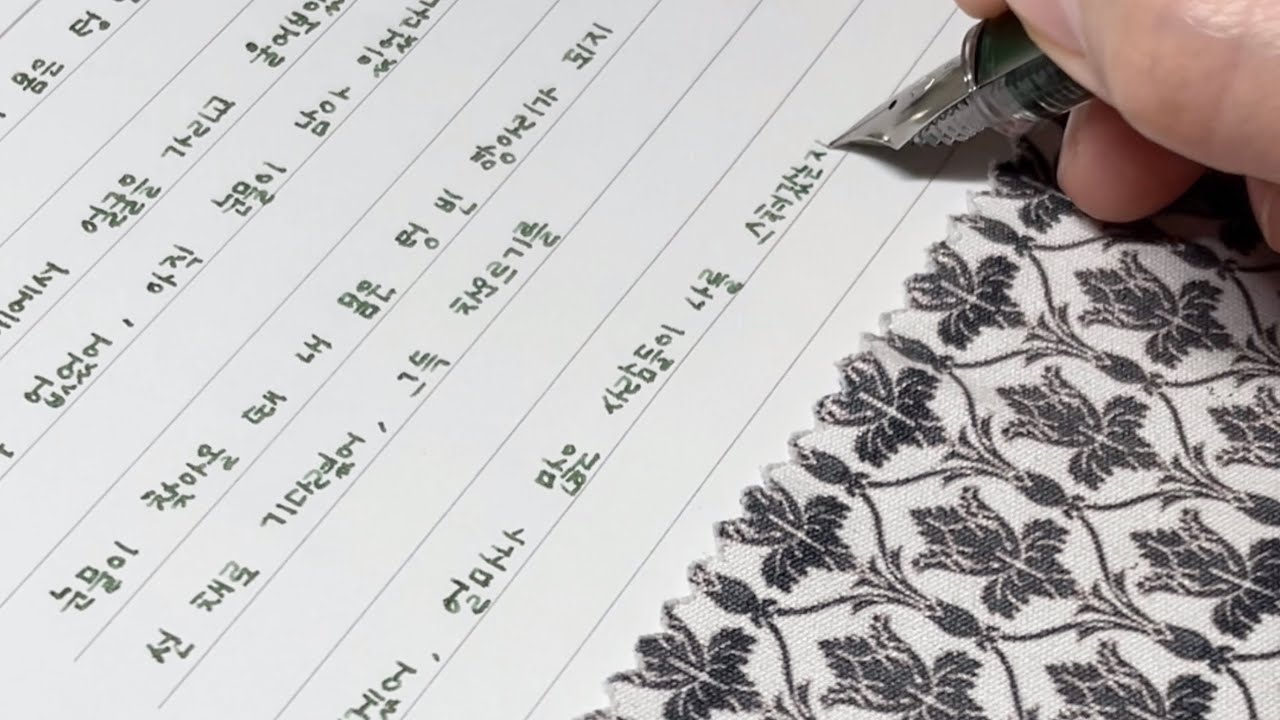 몸은 텅
에서 얼굴을 가리고 울어보았
없었어, 아직 눈물이 남아 있었다니
눈물이 찾아올 때 내 몸은 텅 빈 항아리가 되지
선 채로 기다렸어, 그득 차오르기를
겠어, 얼마나 많은 사람들이 나를 스쳐갔는지